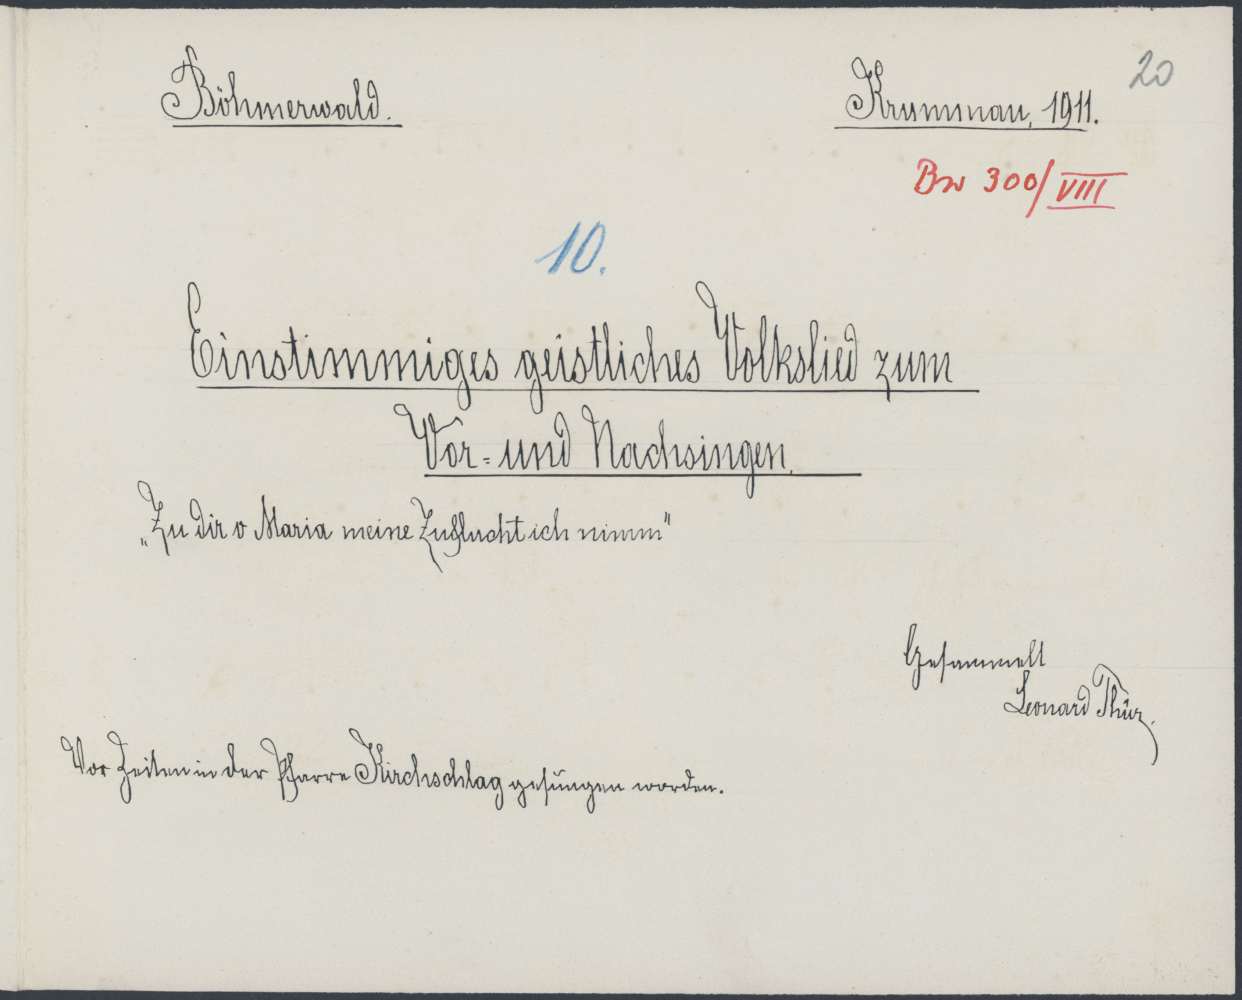 20
Böhmerwald. Krummau, 1911.
Bw 300/VIII
10.
Einstimmiges geistliches Volkslied zum
Vor- und Nachsingen.
„Zu dir o Maria meine Zuflucht ich nimm"
Gesammelt
Leonard Thür.
Vor Zeiten in der Pfarre Kirchschlag gesungen worden.